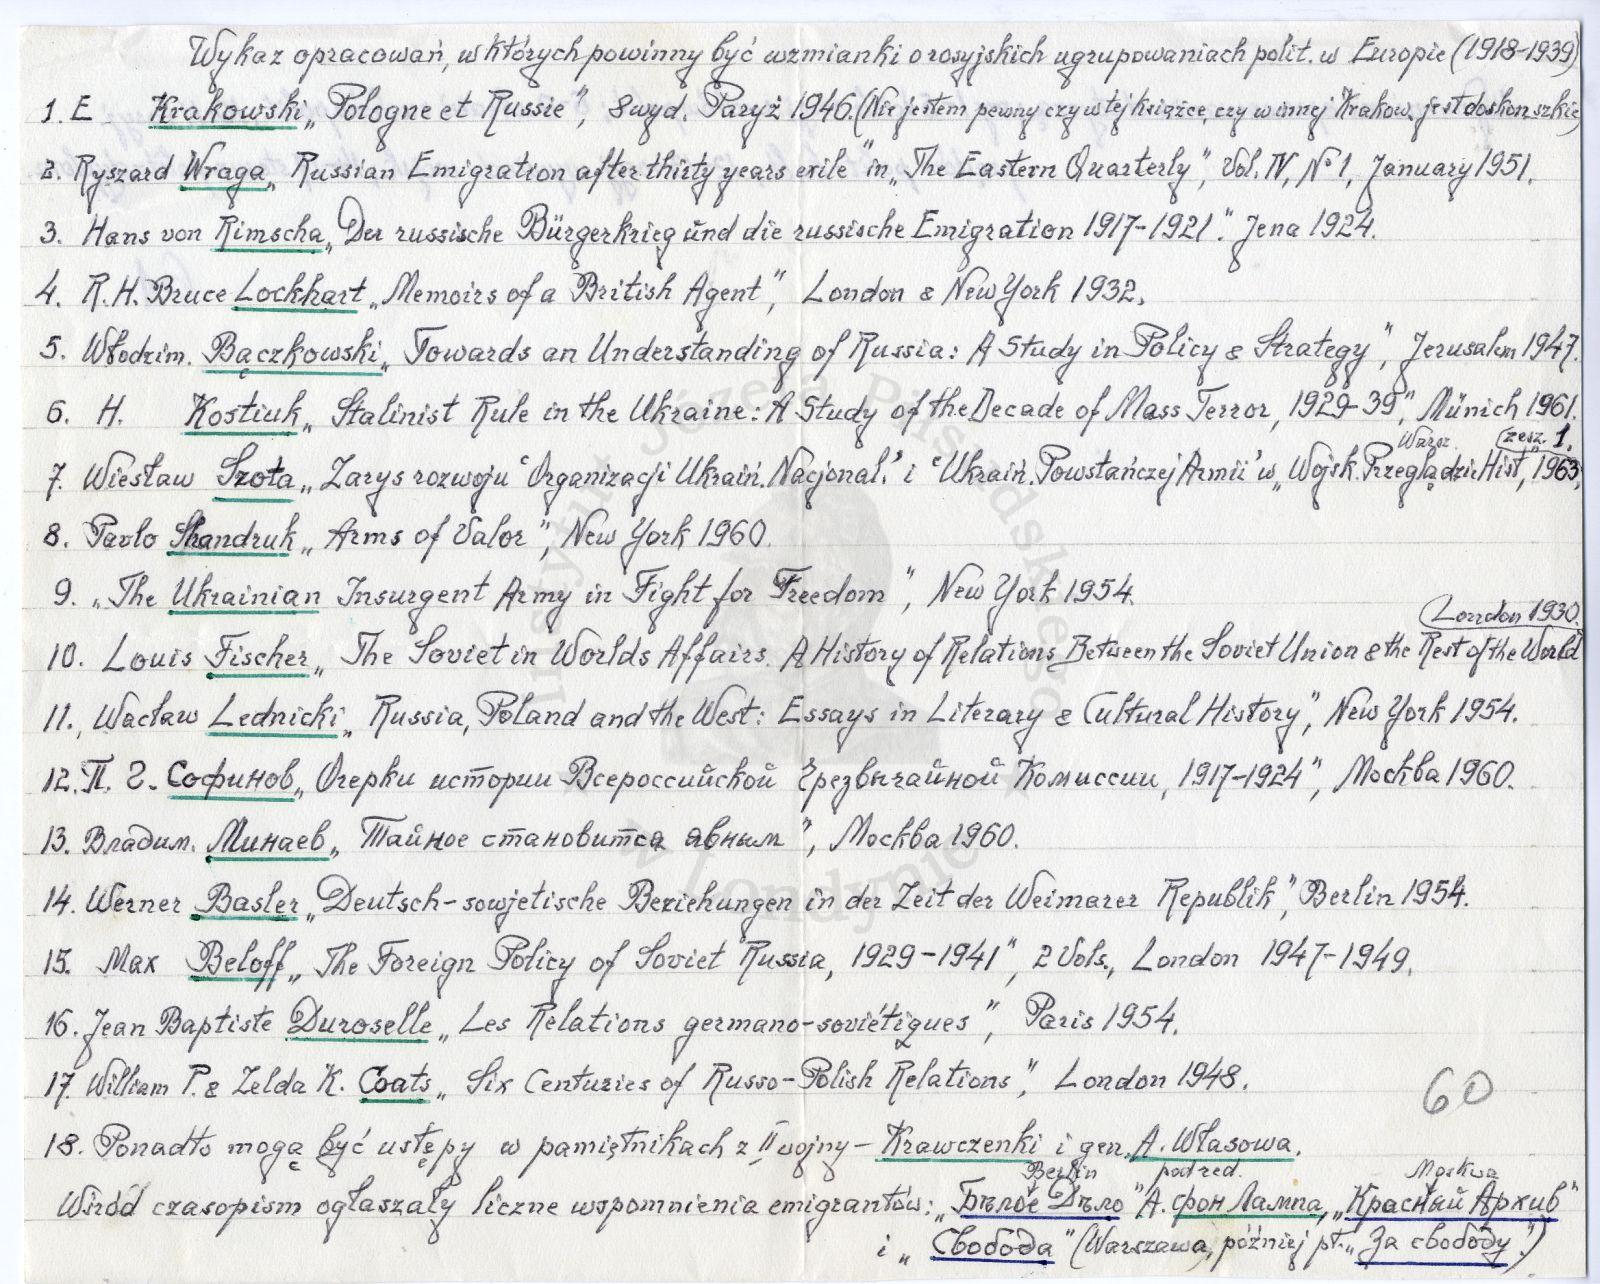 Wykaz opracowań, w których powinny być wzmianki o rosyjskich ugrupowaniach polit. w Europie (1918-1939)
1. E Krakowski „Pologne et Russie", 8 wyd. Paryż 1946. (Nie jestem pewny czy w tej książce, czy w innej Krakow. jest doskon. szkic)
2. Ryszard Wraga „Russian Emigration after thirty years exile" in „The Eastern Quarterly", Vol. IV, Nº 1, January 1951.
3. Hans von Rimscha „Der russische Bürgerkrieg und die russische Emigration 1917-1921". Jena 1924.
4. R.H. Bruce Lockhart „Memoirs of a British Agent", London & New York 1932.
5. Włodzim. Bączkowski „Towards an Understanding of Russia: A Study in Policy & Strategy", Jerusalem 1947.
6. H. Kostiuk „Stalinist Rule in the Ukraine: A Study of the Decade of Mass Terror, 1929-39", Münich 1961.
Warsz. (zesz. 1.
7. Wiesław Szota „Zarys rozwoju 'Organizacji Ukraiń. Nacjonal.' i 'Ukraiń. Powstańczej Armii' w „Wojsk. Przeglądzie Hist", 1963,
8. Pavlo Shandruk „Arms of Valor", New York 1960.
9. „The Ukrainian Insurgent Army in Fight for Freedom", New York 1954.
(London 1930.
10. Louis Fischer „The Soviet in Worlds Affairs. A History of Relations Between the Soviet Union & the Rest of the World
11. Wacław Lednicki „Russia, Poland and the West: Essays in Literary & Cultural History", New York 1954.
12. П. Г. Софинов „Очерки истории Всероссийской Чрезвычайной Комиссии, 1917-1924", Москва 1960.
13. Владим. Минаев „Тайное становится явным", Москва 1960.
14. Werner Basler „Deutsch-sowjetische Beziehungen in der Zeit der Weimarer Republik", Berlin 1954.
15. Max Beloff „The Foreign Policy of Soviet Russia, 1929-1941", 2 Vols., London 1947-1949.
16. Jean Baptiste Duroselle „Les Relations germano-soviétiques", Paris 1954.
17. William P. & Zelda K. Coats „Six Centuries of Russo-Polish Relations", London 1948.
60
18. Ponadto mogą być ustępy w pamiętnikach z II wojny - Krawczenki i gen. A. Własowa.
Berlin pod red. Moskwa
Wśród czasopism ogłaszały liczne wspomnienia emigrantów: „Бѣлое Дѣло" А. фон Лампа, „Красный Архив"
i „Свобода" (Warszawa, później pt. „За свободу".)
Instytut Józefa Piłsudskiego
w Londynie